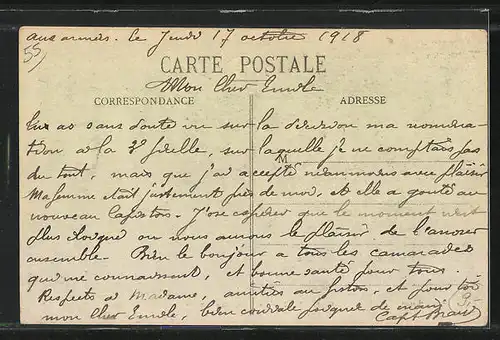 aux armées. le Jeudi 17 octobre 1918
55
CARTE POSTALE
Mon Cher Emile
CORRESPONDANCE
ADRESSE
M
Tu as sans doute vu sur la décision ma nomina-
tion à la 3e ficelle, sur laquelle je ne comptais pas
du tout, mais que j'ai accepté néanmoins avec plaisir
Ma femme était justement près de moi, et elle a goûté au
nouveau Capiston. J'ose espérer que le moment n'est
plus éloigné ou nous aurons le plaisir de l'arroser
ensemble. Bien le bonjour à tous les camarades
qui me connaissent, et bonne santé pour tous.
Respects à Madame, amitiés au fiston, et pour toi
mon Cher Emile, bien cordiale poignée de main
Capt